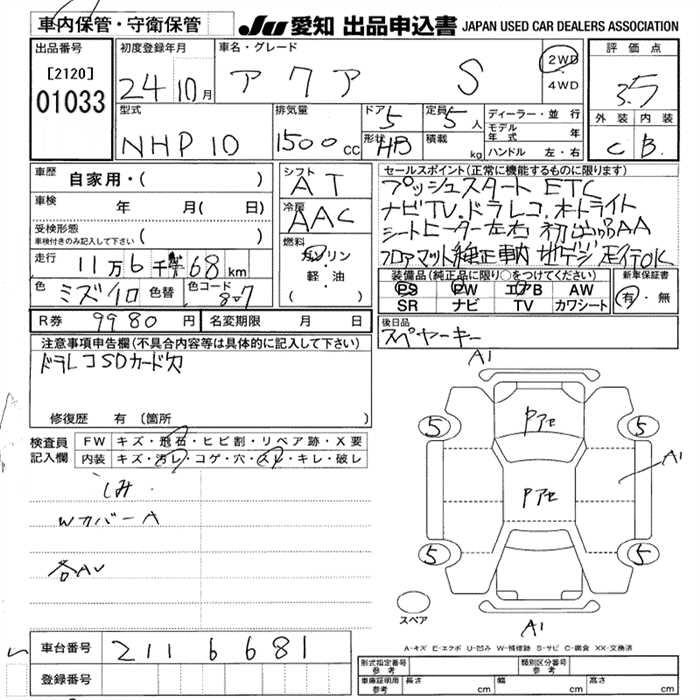 車内保管・守衛保管
JU 愛知 出品申込書 JAPAN USED CAR DEALERS ASSOCIATION
出品番号
[2120]
01033
初度登録年月
24 10月
車名・グレード
アクア S
2WD
・
4WD
評価点
3.5
外装 内装
C B
型式
NHP10
排気量
1500 cc
ドア
5
形状
HB
定員
5人
積載
kg
ディーラー・並行
モデル年式 年
ハンドル 左・右
車歴
自家用・( )
車検
年 月( 日)
受検形態
車検付きのみ記入して下さい ( )
走行
11万6千 68 km
色
ミズイロ
色替
色コード
8-7
シフト
AT
冷房
AAC
燃料
ガソリン
軽・油
( )
セールスポイント(正常に機能するものに限ります)
プッシュスタート ETC
ナビTV.ドラレコ.オートライト
シートヒーター左右 初出品AA
フロアマット純正車内 地デジ走行OK
装備品(純正品に限り○をつけてください)
PS PW エアB AW
SR ナビ TV カワシート
新車保証書
有・無
R券 9980 円
名変期限 月 日
後日品
スペヤーキー
注意事項申告欄(不具合内容等は具体的に記入して下さい)
ドラレコSDカード欠
修復歴 有 (箇所 )
検査員
記入欄
FW キズ・飛石・ヒビ割・リペア跡・X要
内装 キズ・汚レ・コゲ・穴・スレ・キレ・破レ
しみ
Wカバー A
各AU
A1
5 5
Pアセ
A1
Pアセ
5 5
スペア
A1
A-キズ E-エクボ U-凹み W-補修跡 S-サビ C-腐食 XX-交換済
車台番号 2116681
登録番号
形式指定番号
参考
類別区分番号
参考
車庫証明用
参考
長さ cm 幅 cm 高さ cm